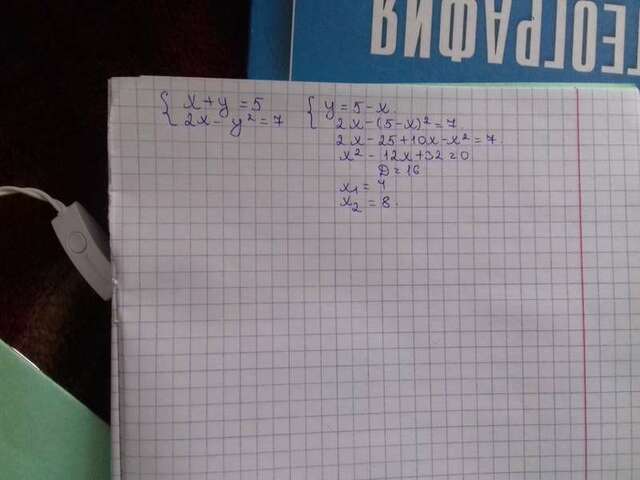 { x + y = 5
2x - y² = 7
{ y = 5 - x.
2x - (5-x)² = 7
2x - 25 + 10x - x² = 7.
x² - 12x + 32 = 0
D = 16
x₁ = 4
x₂ = 8.
ГЕОГРАФИЯ